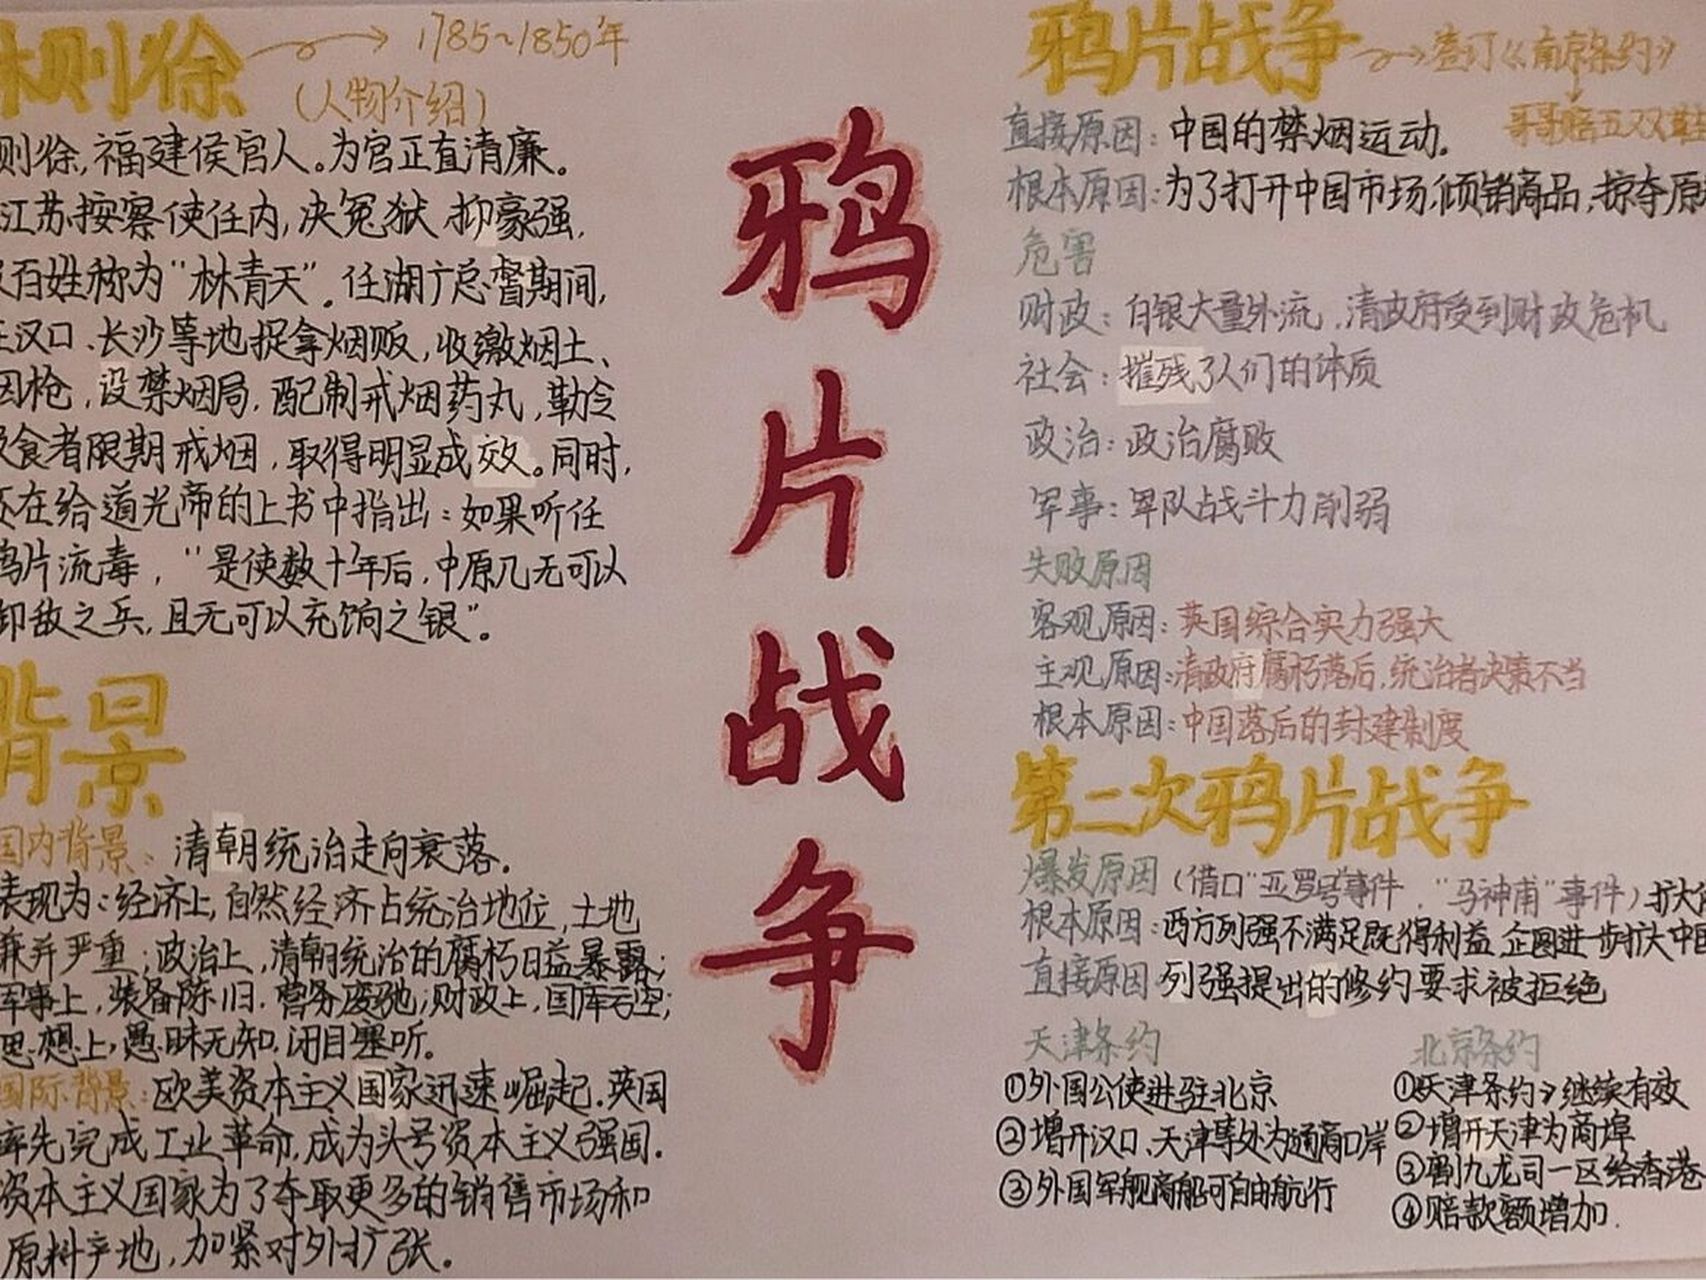 林则徐 1785~1850年
(人物介绍)
则徐,福建侯官人。为官正直清廉。
江苏按察使任内,决冤狱 抑豪强,
百姓称为"林青天"。任湖广总督期间,
汉口、长沙等地捉拿烟贩,收缴烟土、
枪,设禁烟局,配制戒烟药丸,勒令
食者限期戒烟,取得明显成效。同时,
在给道光帝的上书中指出:如果听任
鸦片流毒,"是使数十年后,中原几无可以
御敌之兵,且无可以充饷之银"。
背景
国内背景:清朝统治走向衰落。
表现为:经济上,自然经济占统治地位,土地
兼并严重;政治上,清朝统治的腐朽日益暴露;
军事上,装备陈旧,营务废弛;财政上,国库亏空;
思想上,愚昧无知,闭目塞听。
国际背景:欧美资本主义国家迅速崛起.英国
率先完成工业革命,成为头号资本主义强国.
资本主义国家为了夺取更多的销售市场和
原料产地,加紧对外扩张。
鸦片战争
鸦片战争 签订《南京条约》
哥哥赔五双鞋
直接原因:中国的禁烟运动.
根本原因:为了打开中国市场,倾销商品,掠夺原
危害
财政:白银大量外流,清政府受到财政危机
社会:摧残了人们的体质
政治:政治腐败
军事:军队战斗力削弱
失败原因
客观原因:英国综合实力强大
主观原因:清政府腐朽落后,统治者决策不当
根本原因:中国落后的封建制度
第二次鸦片战争
爆发原因(借口"亚罗号"事件,"马神甫"事件)扩大
根本原因:西方列强不满足既得利益,企图进一步扩大中国
直接原因 列强提出的修约要求被拒绝
天津条约
①外国公使进驻北京
②增开汉口、天津等处为通商口岸
③外国军舰商船可自由航行
北京条约
①《天津条约》继续有效
②增开天津为商埠
③割九龙司一区给香港
④赔款额增加.